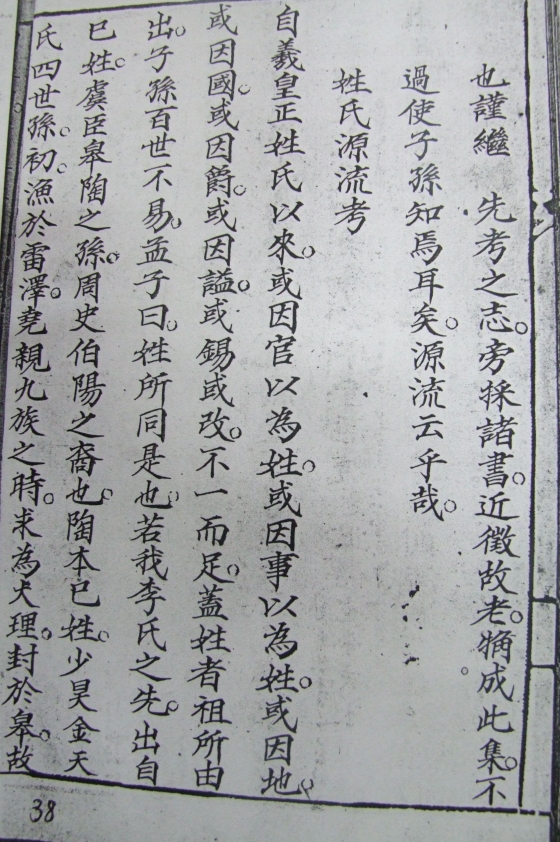 也謹繼　先考之志。旁採諸書。近徵故老。彌成此集。不
過使子孫知焉耳矣。源流云乎哉。
姓氏源流考
自羲皇正姓氏以來。或因官以為姓。或因事以為姓。或因地。
或因國。或因爵。或因謚。或錫或改。不一而足。蓋姓者祖所由
出。子孫百世不易。孟子曰。姓所同是也。若我李氏之先。出自
巳姓。虞臣皋陶之孫。周史伯陽之裔也。陶本巳姓。少昊金天
氏四世孫。初。漁於雷澤。堯親九族之時。求為大理。封於皋。故
38